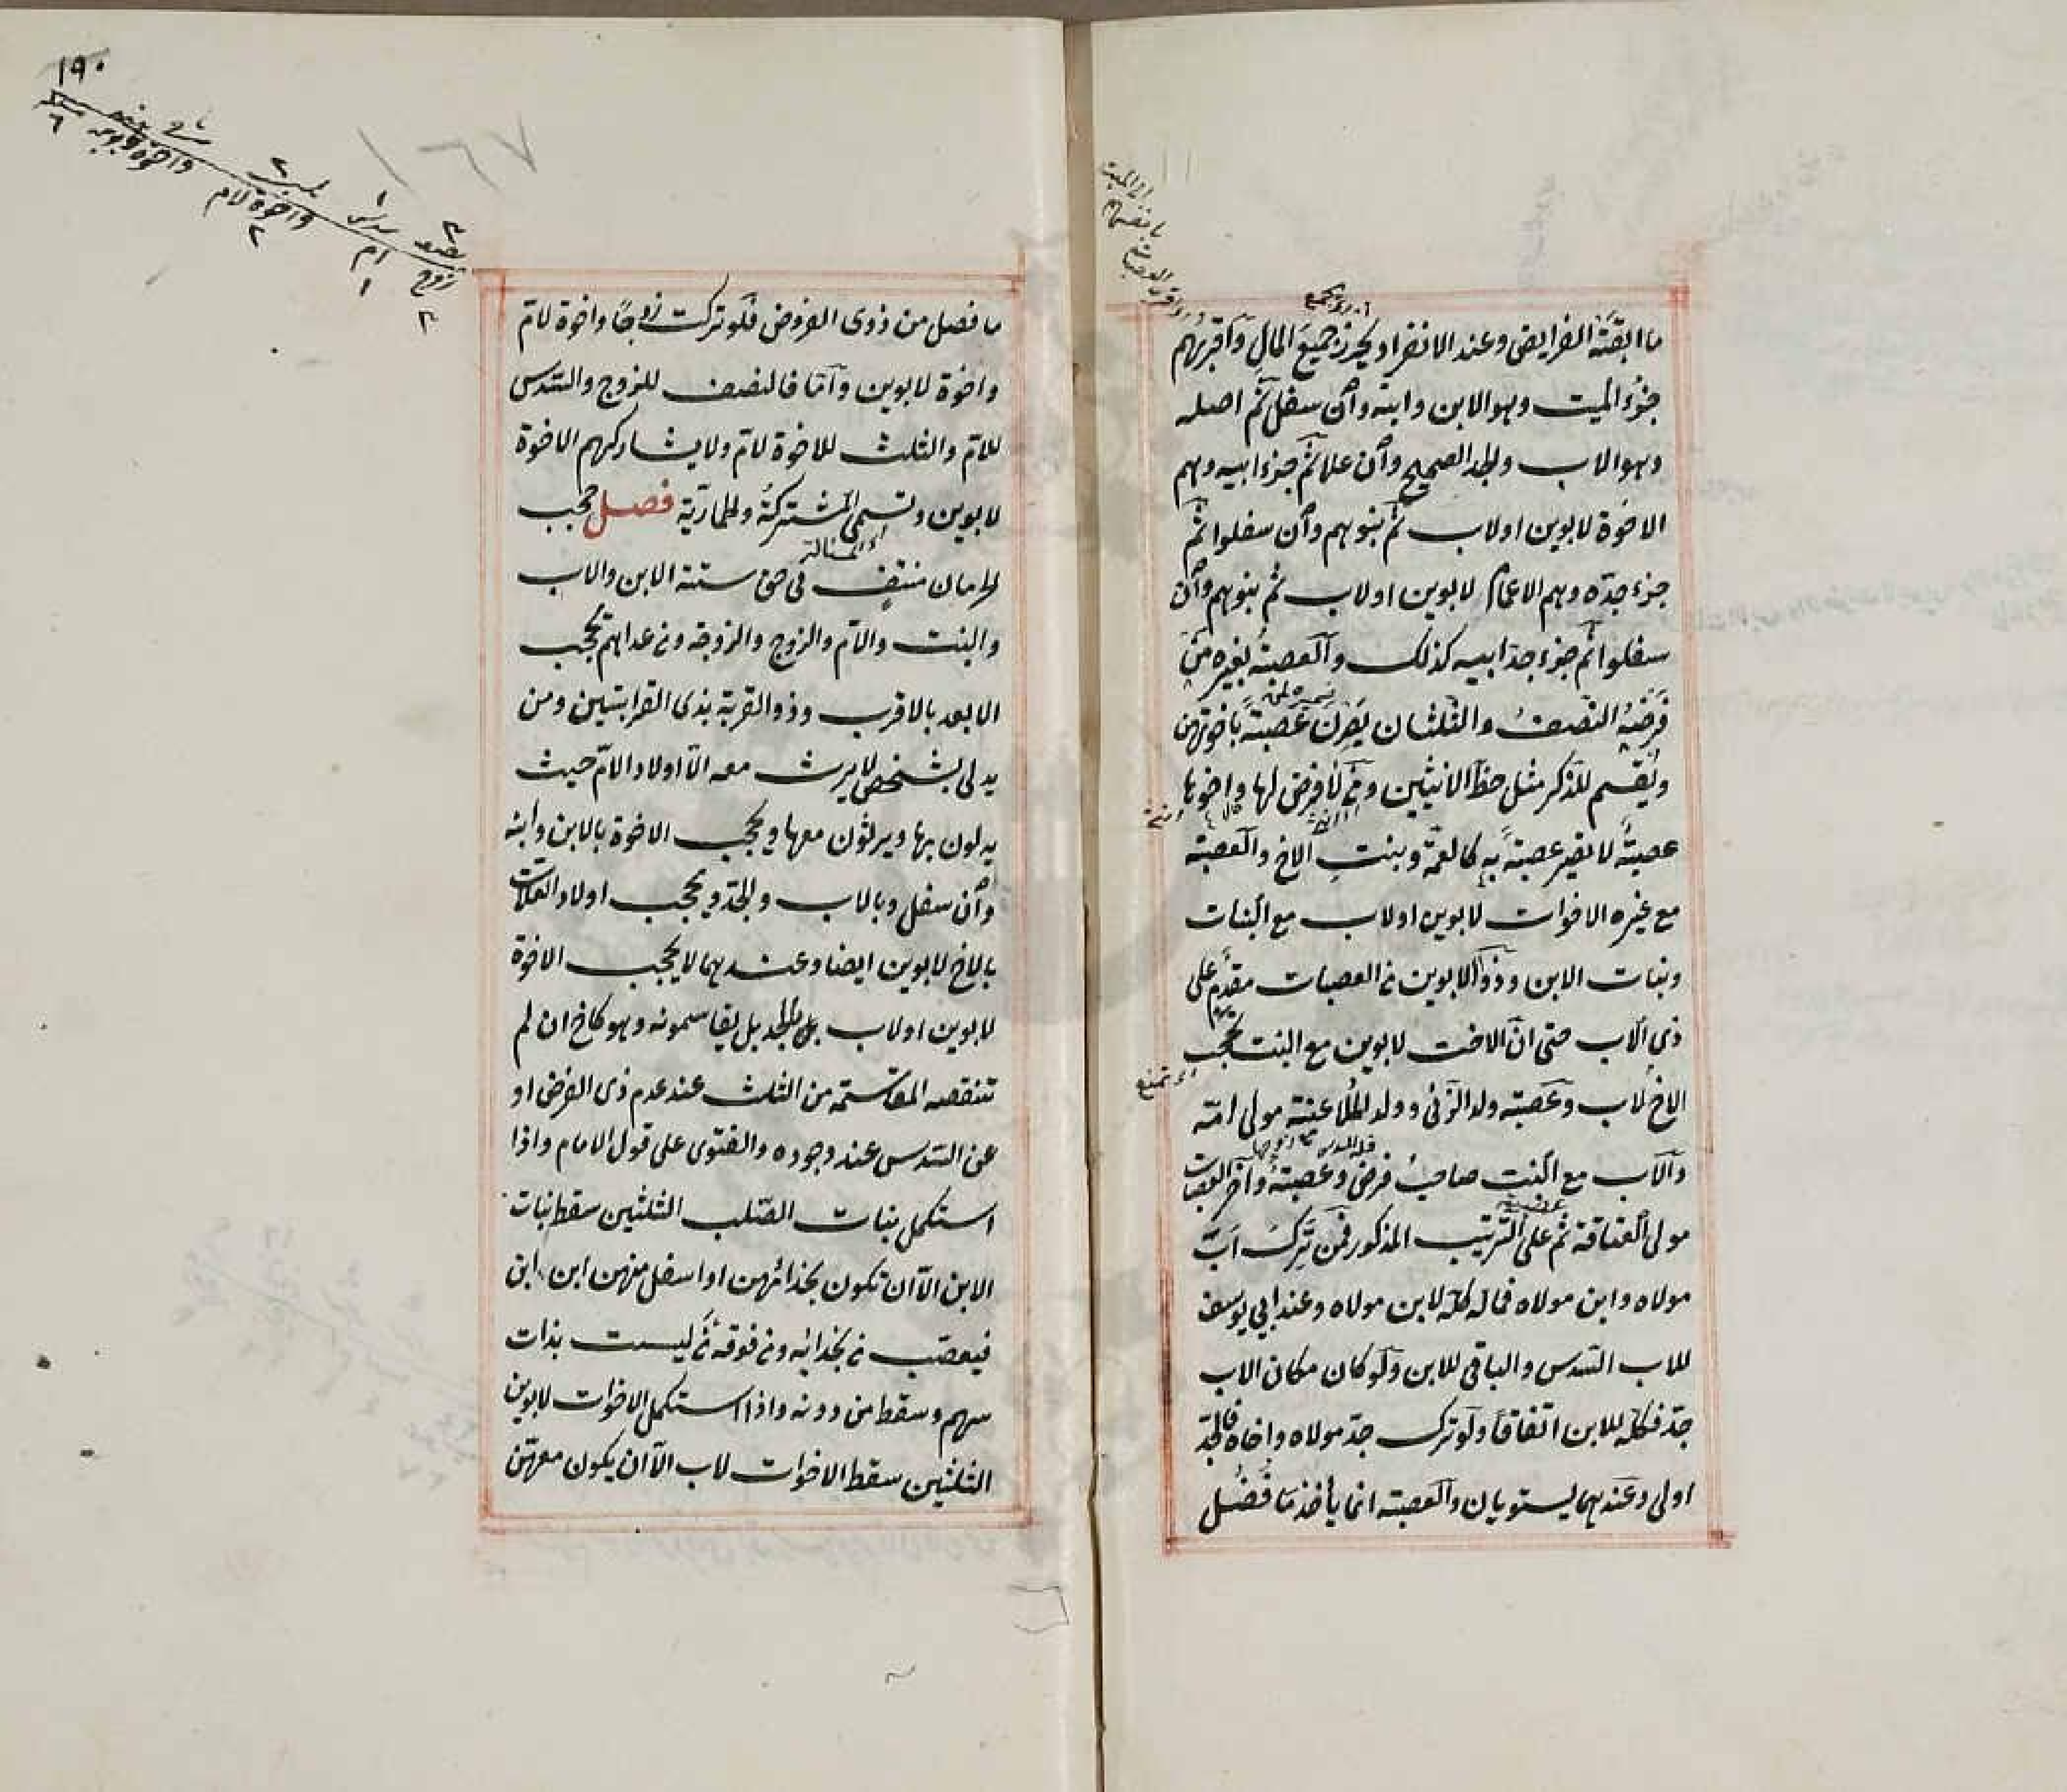 ما ابقته الفرايض وعند الانفراد يحرز جميع المال واقربهم
جزء الميت وهو الابن وابنه وان سفل ثم اصله
وهو الاب والجد الصحيح وان علا ثم جزء ابيه وهم
الاخوة لابوين او لاب ثم بنوهم وان سفلوا ثم
جزء جده وهم الاعمام لابوين او لاب ثم بنوهم وان
سفلوا ثم جزء جد ابيه كذلك والعصبة بغيره من
فرضه النصف والثلثان يصرن عصبة باخوتهن
ويقسم للذكر مثل حظ الانثيين ومن لا فرض لها واخوها
عصبة لا تصير عصبة به كالعمة وبنت الاخ والعصبة
مع غيره الاخوات لابوين او لاب مع البنات
وبنات الابن وذو الابوين من العصبات مقدم على
ذى الاب حتى ان الاخت لابوين مع البنت تحجب
الاخ لاب وعصبة ولد الزنى وولد الملاعنة مولى امه
والاب مع البنت صاحب فرض وعصبة واخر العصبات
مولى العتاقة ثم على الترتيب المذكور فمن ترك اب
مولاه وابن مولاه فماله كله لابن مولاه وعند ابي يوسف
للاب السدس والباقى للابن ولو كان مكان الاب
جد فكله للابن اتفاقا ولو ترك جد مولاه واخاه فالجد
اولى وعندهما يستويان والعصبة انما يأخذ ما فضل
١٩٠
زوج
ام
واخوة لام
ما فضل من ذوى الفروض فلو تركت زوجا واخوة لام
واخوة لابوين واما فالنصف للزوج والسدس
للام والثلث للاخوة لام ولا يشاركهم الاخوة
لابوين وتسمى المشتركة والحمارية فصل حجب
الحرمان منتف فى حق ستة الابن والاب
والبنت والام والزوج والزوجة ومن عداهم تحجب
الابعد بالاقرب وذو القربة بذى القرابتين ومن
يدلى بشخص لا يرث معه الا اولاد الام حيث
يدلون بها ويرثون معها ويحجب الاخوة بالابن وابنه
وان سفل وبالاب والجد ويحجب اولاد العلات
بالاخ لابوين ايضا وعندهما لا يحجب الاخوة
لابوين او لاب بالجد بل يقاسمونه وهو كاخ ان لم
تنقصه المقاسمة من الثلث عند عدم ذى الفرض او
عن السدس عند وجوده والفتوى على قول الامام واذا
استكمل بنات الصلب الثلثين سقط بنات
الابن الا ان تكون بحذائهن او اسفل منهن ابن ابن
فيعصب من بحذائه ومن فوقه ممن ليست بذات
سهم وسقط من دونه واذا استكمل الاخوات لابوين
الثلثين سقط الاخوات لاب الا ان يكون معهن